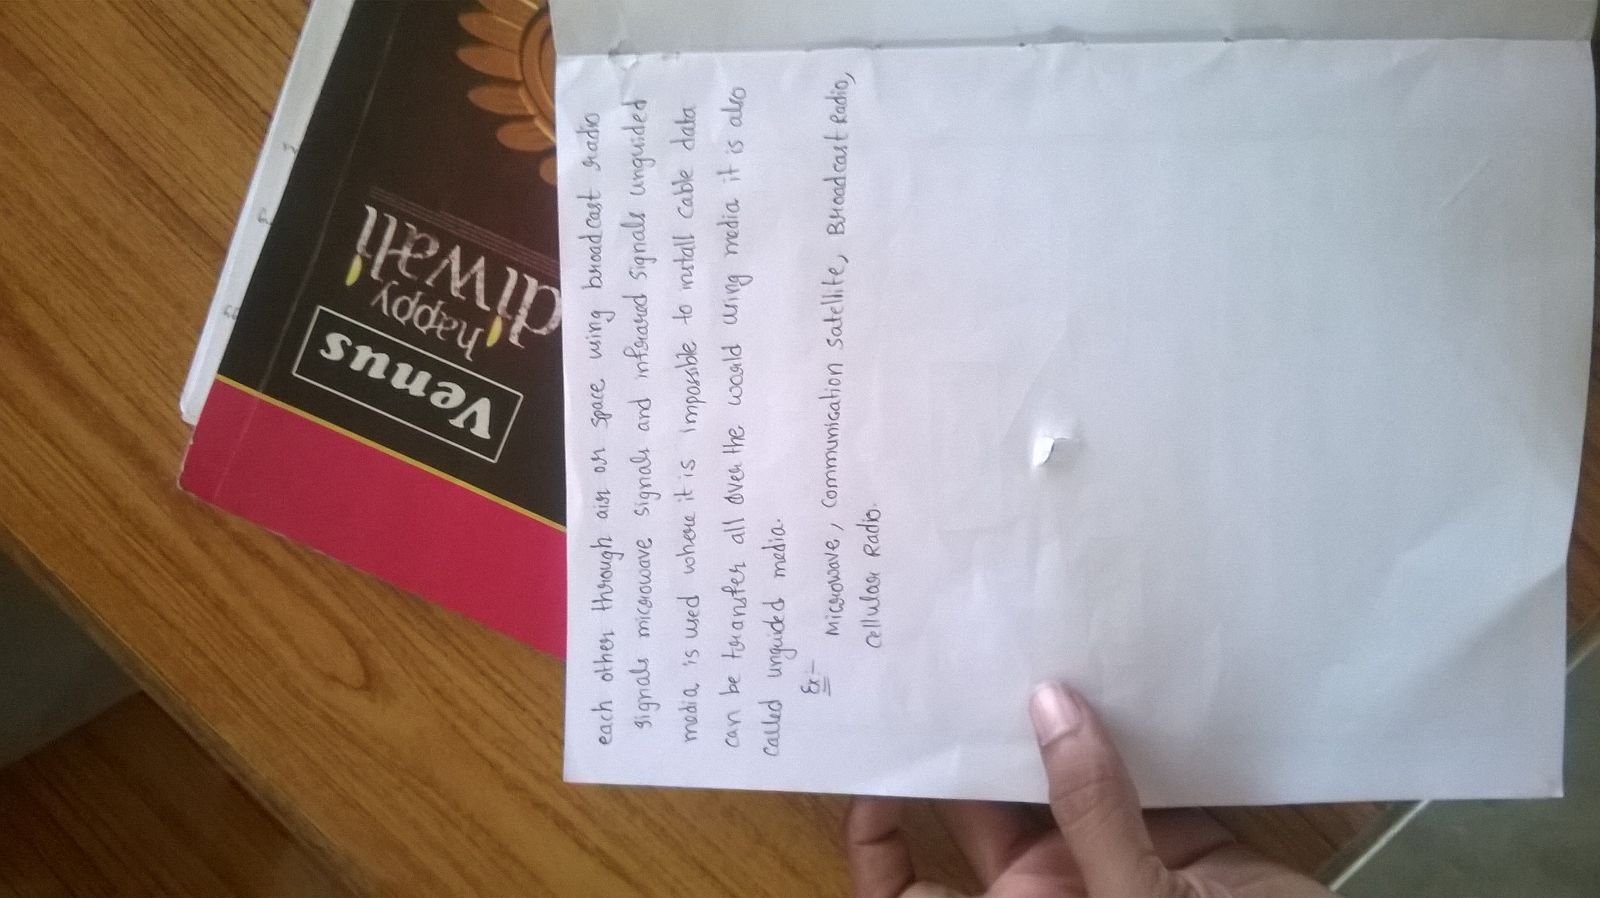 Venus
happy
diwali
each other through air or space using broadcast radio
signals microwave signals and infrared signals unguided
media is used where it is impossible to install cable data
can be transfer all over the world using media it is also
called unguided media.
Ex-
Microwave, Communication Satellite, Broadcast Radio,
Cellular Radio.